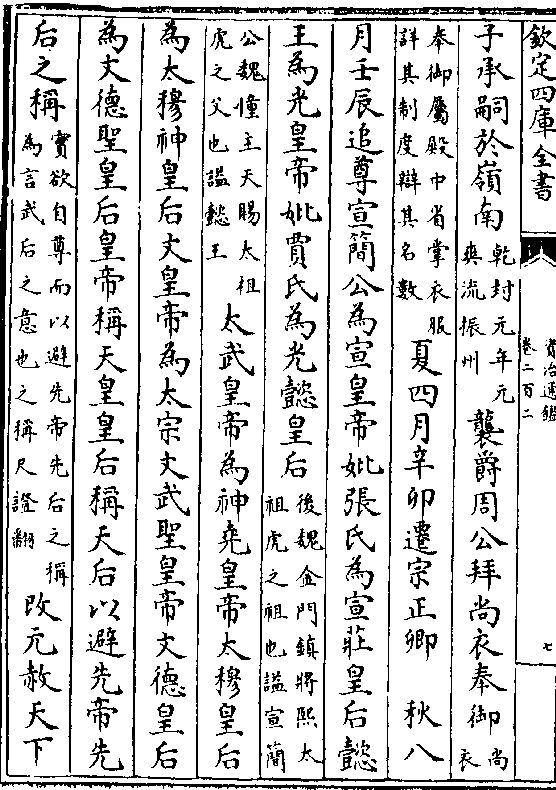 欽定四庫全書
資治通鑑
卷二百二
七
子承嗣於嶺南乾封元年元爽流振州襲爵周公拜尚衣奉御尚衣
奉御屬殿中省掌衣服詳其制度辯其名數夏四月辛卯遷宗正卿 秋八
月壬辰追尊宣簡公為宣皇帝妣張氏為宣莊皇后懿
王為光皇帝妣賈氏為光懿皇后後魏金門鎮將熙太祖虎之祖也諡宣簡
公魏憧主天賜太祖虎之父也諡懿王太武皇帝為神堯皇帝太穆皇后
為太穆神皇后文皇帝為太宗文武聖皇帝文德皇后
為文德聖皇后皇帝稱天皇皇后稱天后以避先帝先
后之稱實欲自尊而以避先帝先后之稱為言武后之意也之稱尺證翻改元赦天下